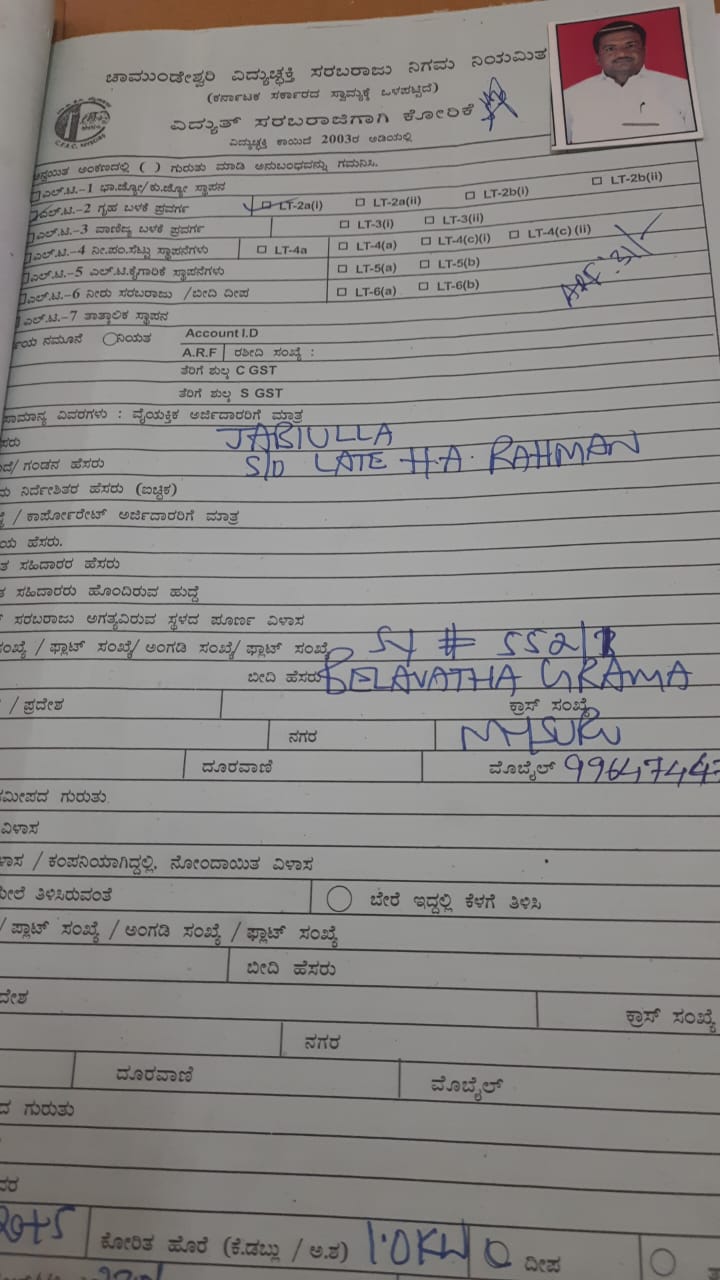 ಚಾಮುಂಡೇಶ್ವರಿ ವಿದ್ಯುಚ್ಛಕ್ತಿ ಸರಬರಾಜು ನಿಗಮ ನಿಯಮಿತ
(ಕರ್ನಾಟಕ ಸರ್ಕಾರದ ಸ್ವಾಮ್ಯಕ್ಕೆ ಒಳಪಟ್ಟಿದೆ)
ವಿದ್ಯುತ್ ಸರಬರಾಜಿಗಾಗಿ ಕೋರಿಕೆ
ವಿದ್ಯುಚ್ಛಕ್ತಿ ಕಾಯಿದೆ 2003ರ ಅಡಿಯಲ್ಲಿ
ಅನ್ವಯಿತ ಅಂಕಣದಲ್ಲಿ ( ) ಗುರುತು ಮಾಡಿ ಅನುಬಂಧವನ್ನು ಗಮನಿಸಿ.
ಎಲ್.ಟಿ.-1 ಭಾ.ಜ್ಯೋ/ಕು.ಜ್ಯೋ ಸ್ಥಾಪನ
ಎಲ್.ಟಿ.-2 ಗೃಹ ಬಳಕೆ ಪ್ರವರ್ಗ LT-2a(i) LT-2a(ii) LT-2b(i) LT-2b(ii)
ಎಲ್.ಟಿ.-3 ವಾಣಿಜ್ಯ ಬಳಕೆ ಪ್ರವರ್ಗ LT-3(i) LT-3(ii)
ಎಲ್.ಟಿ.-4 ನೀ.ಪಂ.ಸೆಟ್ಟು ಸ್ಥಾಪನೆಗಳು LT-4a LT-4(a) LT-4(c)(i) LT-4(c) (ii)
ಎಲ್.ಟಿ.-5 ಎಲ್.ಟಿ.ಕೈಗಾರಿಕೆ ಸ್ಥಾಪನೆಗಳು LT-5(a) LT-5(b)
ಎಲ್.ಟಿ.-6 ನೀರು ಸರಬರಾಜು /ಬೀದಿ ದೀಪ LT-6(a) LT-6(b)
ಎಲ್.ಟಿ.-7 ತಾತ್ಕಾಲಿಕ ಸ್ಥಾಪನ
ನಮೂನೆ ನಿಯತ Account I.D
A.R.F ರಶೀದಿ ಸಂಖ್ಯೆ :
ತೆರಿಗೆ ಶುಲ್ಕ C GST
ತೆರಿಗೆ ಶುಲ್ಕ S GST
ಸಾಮಾನ್ಯ ವಿವರಗಳು : ವೈಯಕ್ತಿಕ ಅರ್ಜಿದಾರರಿಗೆ ಮಾತ್ರ
JABIULLA
/ ಗಂಡನ ಹೆಸರು S/O LATE H.A. RAHMAN
ನಿರ್ದೇಶಿತರ ಹೆಸರು (ಐಚ್ಛಿಕ)
/ ಕಾರ್ಪೋರೇಟ್ ಅರ್ಜಿದಾರರಿಗೆ ಮಾತ್ರ
ಹೆಸರು.
ಸಹಿದಾರರ ಹೆಸರು
ಸಹಿದಾರರು ಹೊಂದಿರುವ ಹುದ್ದೆ
ಸರಬರಾಜು ಅಗತ್ಯವಿರುವ ಸ್ಥಳದ ಪೂರ್ಣ ವಿಳಾಸ
ಸಂಖ್ಯೆ / ಫ್ಲಾಟ್ ಸಂಖ್ಯೆ/ ಅಂಗಡಿ ಸಂಖ್ಯೆ/ ಫ್ಲಾಟ್ ಸಂಖ್ಯೆ SY # 552/
ಬೀದಿ ಹೆಸರು BELAVATHA GRAMA
/ ಪ್ರದೇಶ ಕ್ರಾಸ್ ಸಂಖ್ಯೆ
ನಗರ MYSURU
ದೂರವಾಣಿ ಮೊಬೈಲ್ 99647447
ಸಮೀಪದ ಗುರುತು
ವಿಳಾಸ
/ ಕಂಪನಿಯಾಗಿದ್ದಲ್ಲಿ, ನೋಂದಾಯಿತ ವಿಳಾಸ
ಮೇಲೆ ತಿಳಿಸಿರುವಂತೆ ಬೇರೆ ಇದ್ದಲ್ಲಿ ಕೆಳಗೆ ತಿಳಿಸಿ
/ ಪ್ಲಾಟ್ ಸಂಖ್ಯೆ / ಅಂಗಡಿ ಸಂಖ್ಯೆ / ಫ್ಲಾಟ್ ಸಂಖ್ಯೆ
ಬೀದಿ ಹೆಸರು
ಕ್ರಾಸ್ ಸಂಖ್ಯೆ
ನಗರ
ದೂರವಾಣಿ ಮೊಬೈಲ್
ಗುರುತು
ಕೋರಿತ ಹೊರೆ (ಕೆ.ಡಬ್ಲು / ಅ.ಶ) 1.0KW ದೀಪ